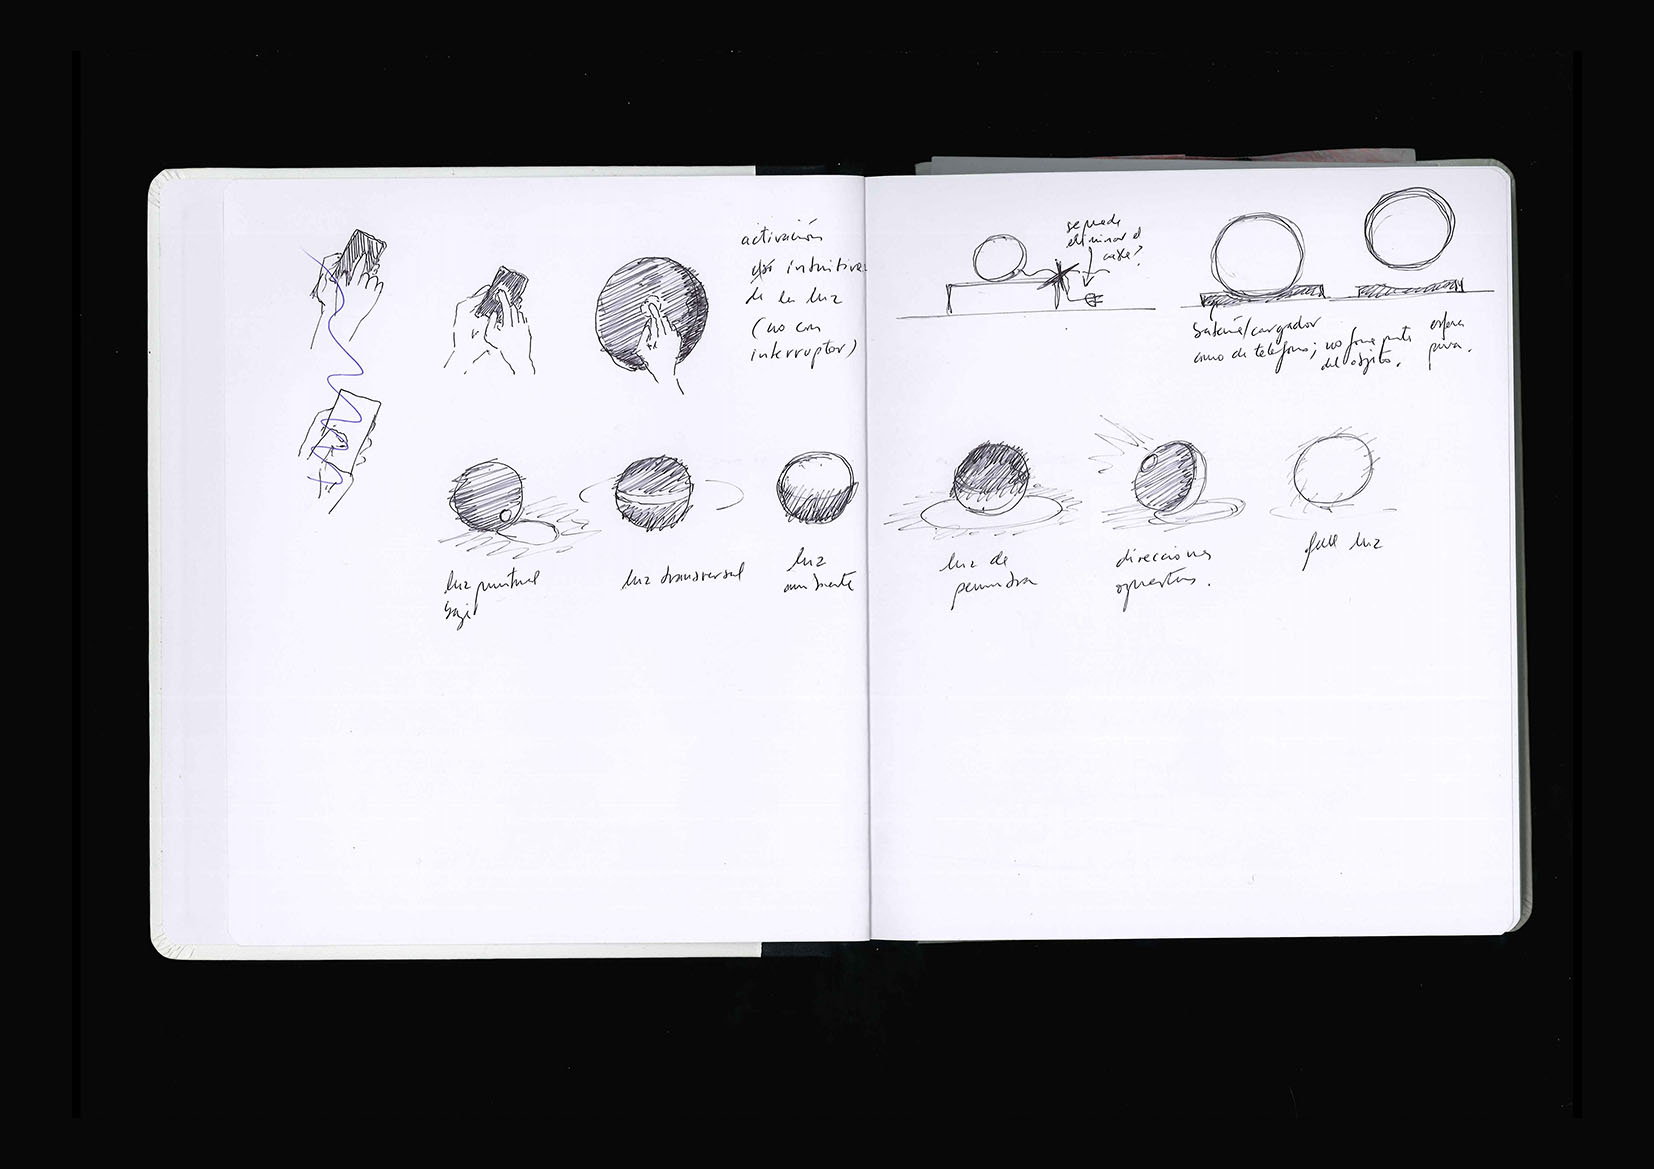 activación
intuitiva
de la luz
(no con
interruptor)
luz puntual
baja
luz transversal
luz
ambiente
se puede
eliminar el
cable?
batería/cargador
como de teléfono; no forma parte
del objeto.
esfera
pura.
luz de
penumbra
direcciones
opuestas.
full luz